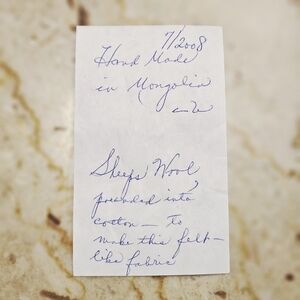 7/2008
Hand Made
in Mongolia
Sheeps Wool
pounded into
cotton — to
make this felt-
like fabric